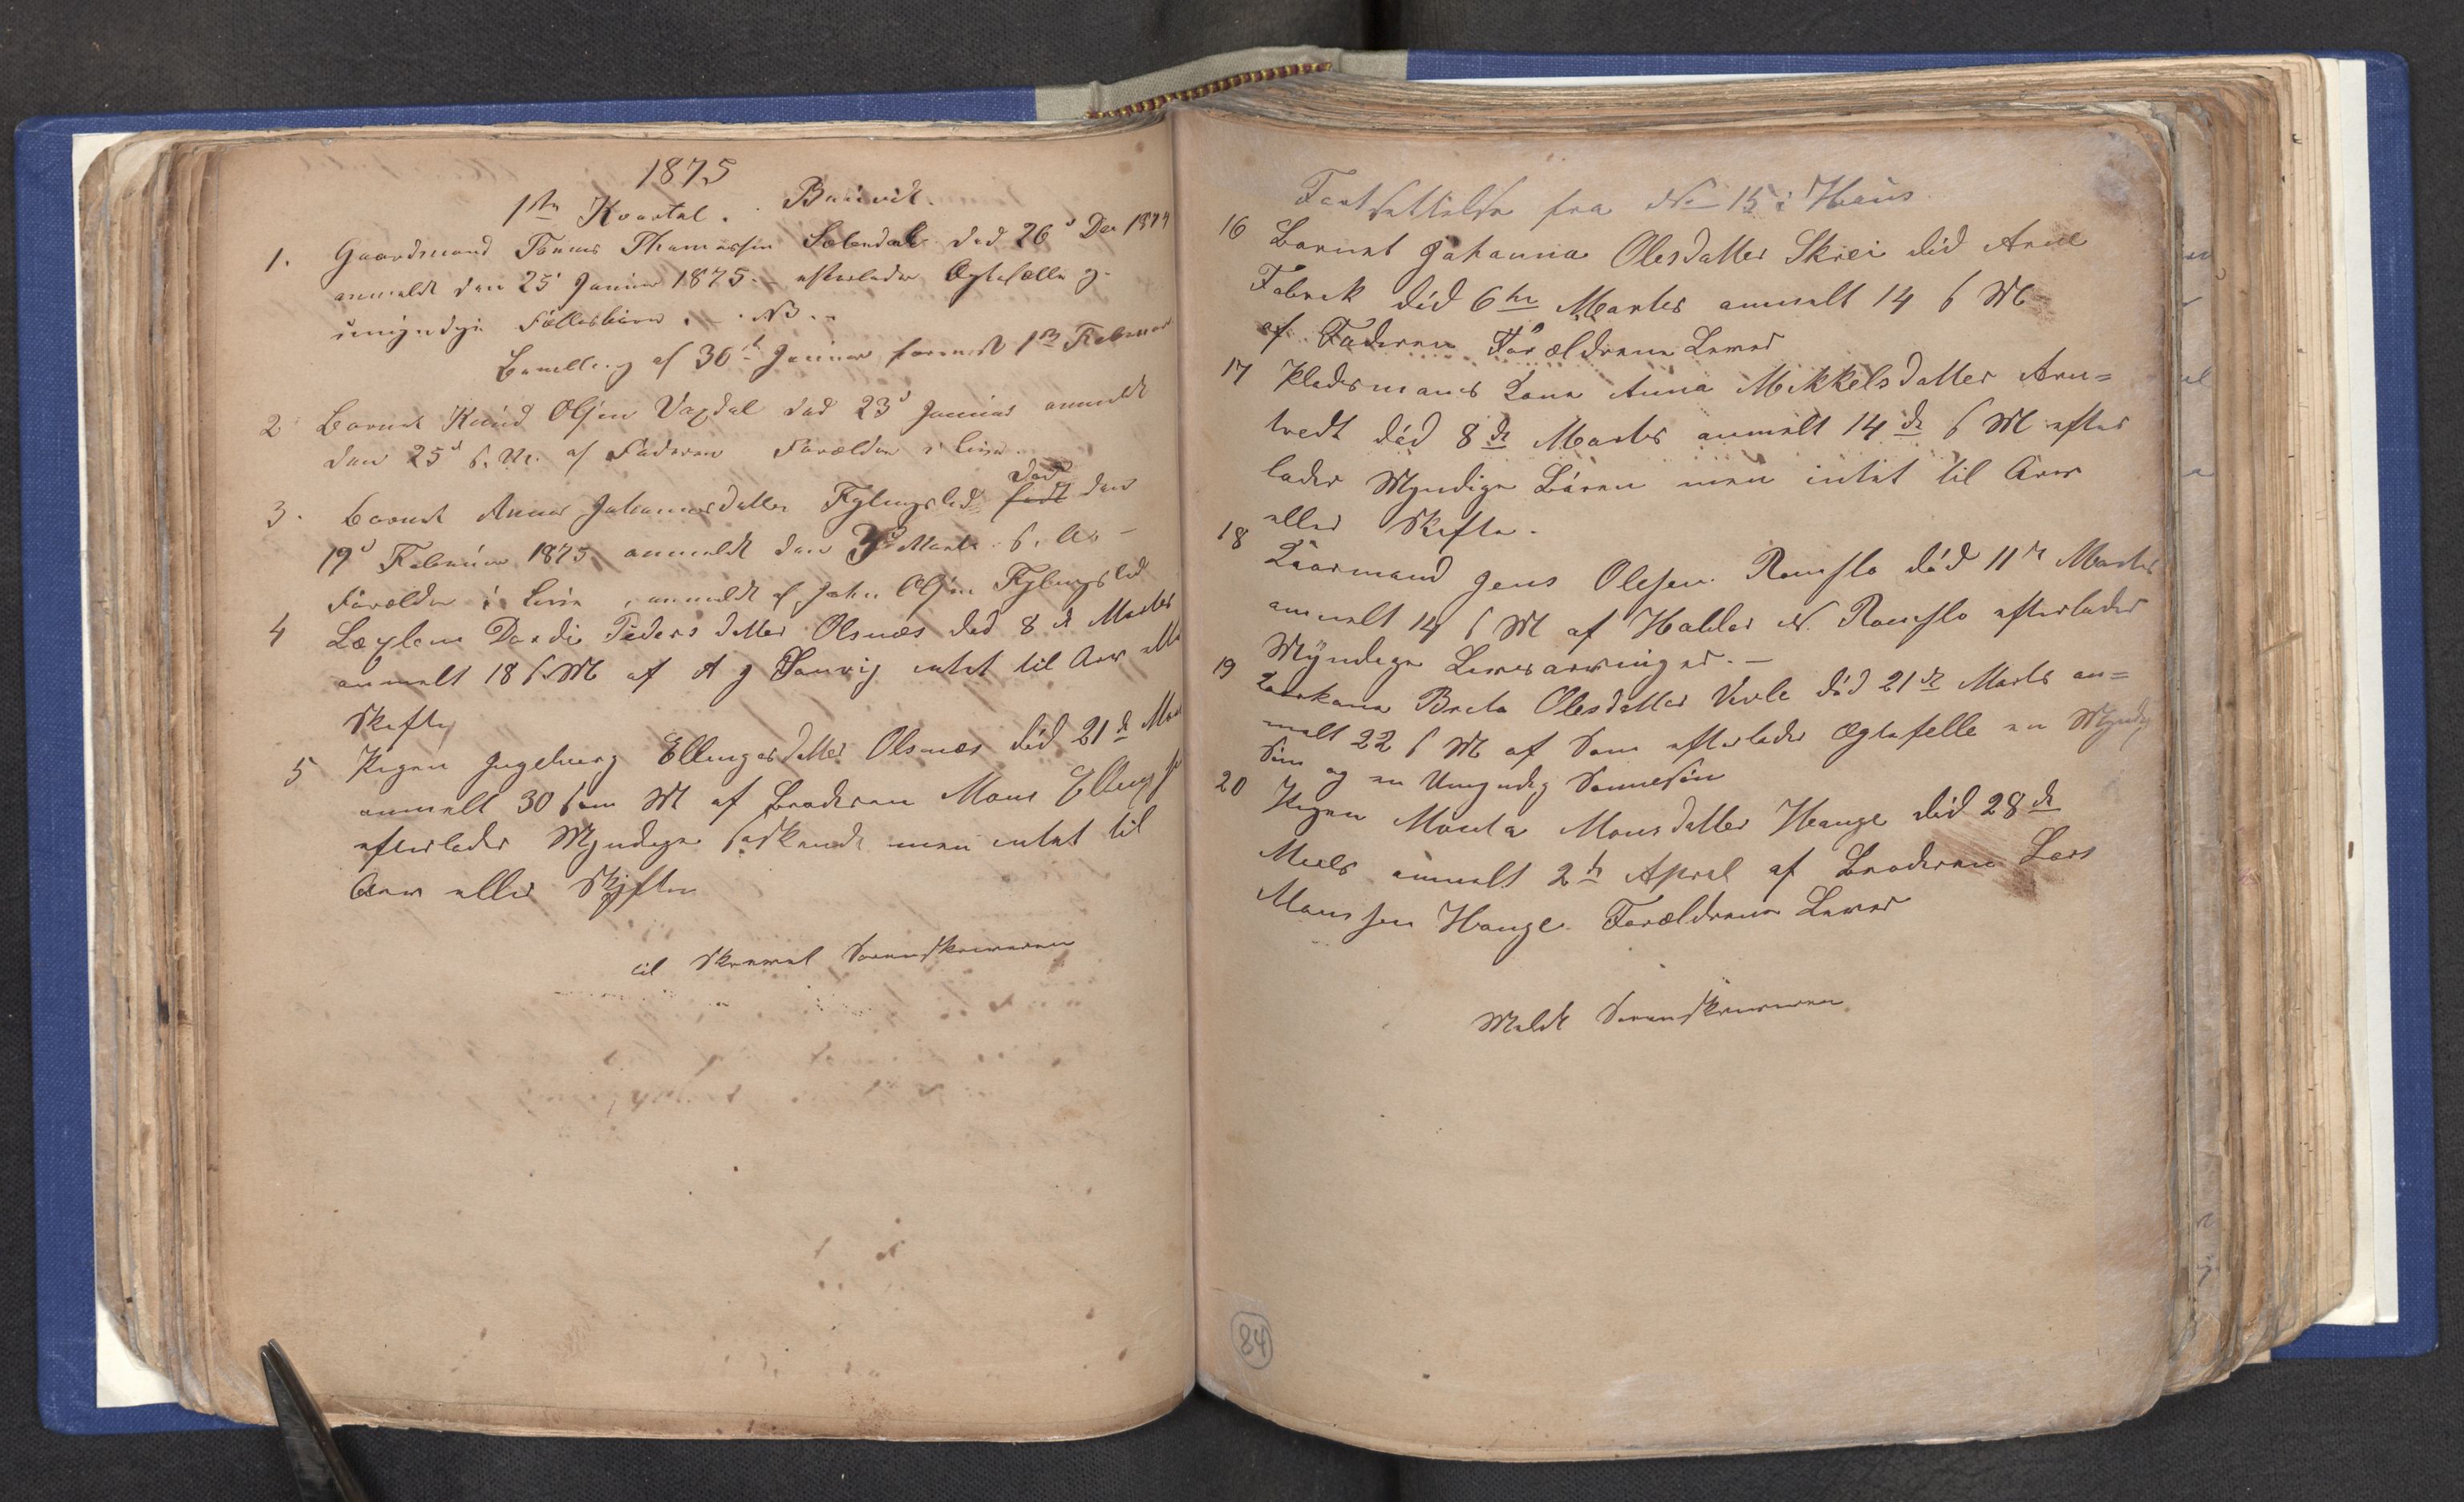 1875
1ste Kvartal. Bruvik.
1. Gaardmand Tomas Thomassen Sælendal død 26d Dec 1874
anmeldt den 25d Januar 1875. – efterlader Ægtefælle og
umyndige Fællesbørn. – NB. –
af 30te Januar 1ste Februar
2 Barnet Knud Olsen Vaxdal død 23d Januar anmeldt
den 25d s. M. af Faderen Forældre i live.
3. Barnet Anna Johannesdatter Fylingslid født død den
19d Februar 1875 anmeldt den Marts
Forældre i Live, anmeldt af John Olsen Fylingslid
4 Lægdlem Dordi Pedersdatter Olsnæs død 8 de Marts
anmelt 18 s. M af A J intet til Arv eller
Skifte
5 Pigen Ingeborg Ellingsdatter Olsnæs død 21 de Mar
anmelt 30 sam M af Broderen Mons Ellings
efterlader Myndige Søskende men intet til
Arv eller Skifte
til Skrevet Sorenskriveren
Fortsættelse fra No 15 i Haus
16 Barnet Johanna Olesdatter Skrei død Arne
Fabrik død 6te Marts anmelt 14 s M
af Faderen Forældrene Lever
17 Pladsmands Kone Anna Mikkelsdatter Arn=
tvedt død 8 de Marts anmelt 14 de s M efter
lader Myndige Bören men intet til Arv
eller Skifte.
18 Kaarmand Jens Olesen Romslo død 11 te Marts
anmelt 14 s M af Haldor N. Romslo efterlader
Myndige Livsarvinger. –
19 Kaarkone Brita Olesdatter Vevle død 21 de Marts an=
melt 22 s M af Søn efterlader Ægtefelle en Myndig
Søn og en Umyndig Sønnesøn
20 Pigen Monsdatter Hauge død 28 de
Marts anmelt 2 de April af Broderen Lars
Monsen Hauge Forældrene Lever
Meldt Sorenskriveren
84